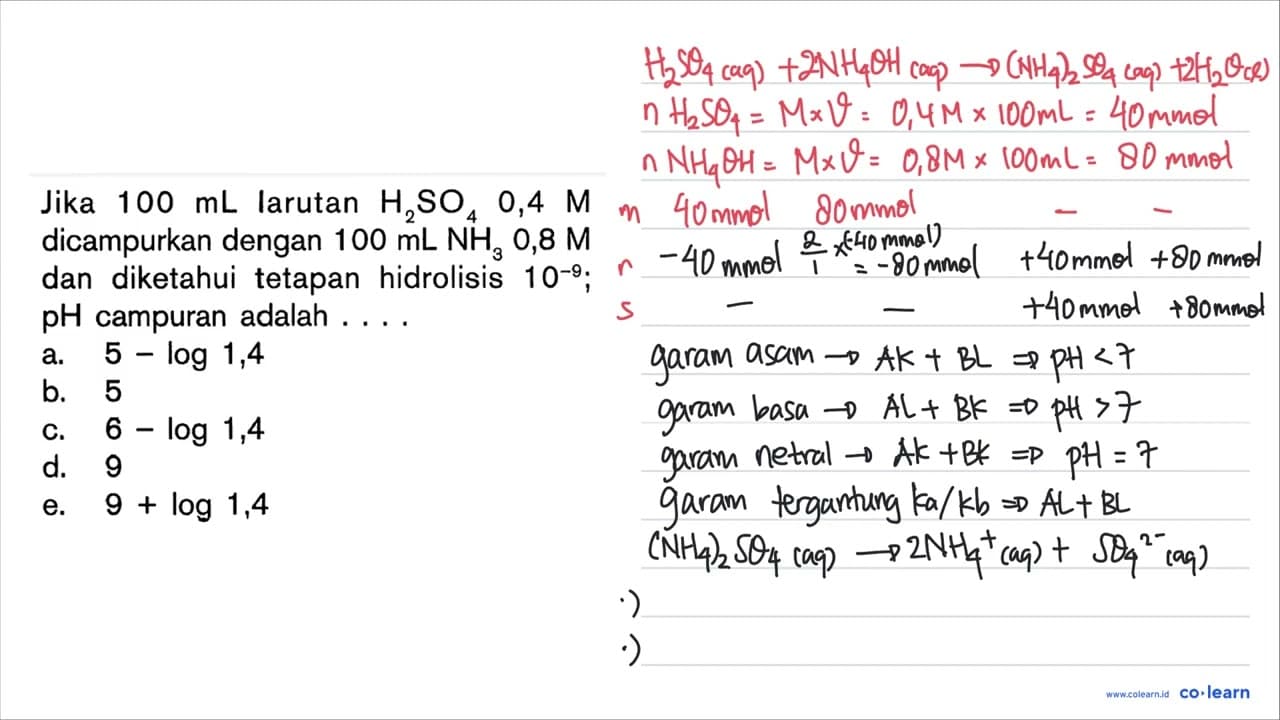 Jika 100 mL larutan H₂SO₄ 0,4 M
dicampurkan dengan 100 mL NH₃ 0,8 M
dan diketahui tetapan hidrolisis 10⁻⁹;
pH campuran adalah . . . .
a. 5 − log 1,4
b. 5
c. 6 − log 1,4
d. 9
e. 9 + log 1,4
H₂SO₄ (aq) + 2NH₄OH (aq) → (NH₄)₂SO₄ (aq) + 2H₂O(l)
n H₂SO₄ = M × V = 0,4 M × 100 mL = 40 mmol
n NH₄OH = M × V = 0,8 M × 100 mL = 80 mmol
m 40 mmol 80 mmol − −
r −40 mmol 2/1 × (−40 mmol) = −80 mmol +40 mmol +80 mmol
s − − +40 mmol +80 mmol
garam asam → AK + BL ⇒ pH < 7
garam basa → AL + BK ⇒ pH > 7
garam netral → AK + BK ⇒ pH = 7
garam tergantung ka/kb ⇒ AL + BL
(NH₄)₂SO₄ (aq) → 2NH₄⁺ (aq) + SO₄²⁻ (aq)
·)
·)
www.colearn.id co·learn